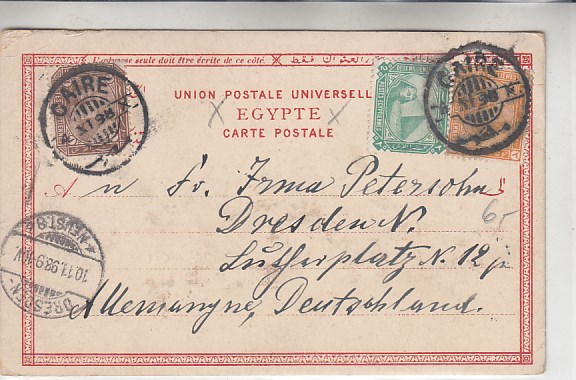 L'adresse seule doit être écrite de ce côté.
CAIRE
XI 98
CAIRE
XI 98
UNION POSTALE UNIVERSELLE
EGYPTE
CARTE POSTALE
An Fr. Irma Petersohn
Dresden N.
6
Lutherplatz N. 12
Allemangne, Deutschland.
NEUST.
10.11.98.
DRESDEN-